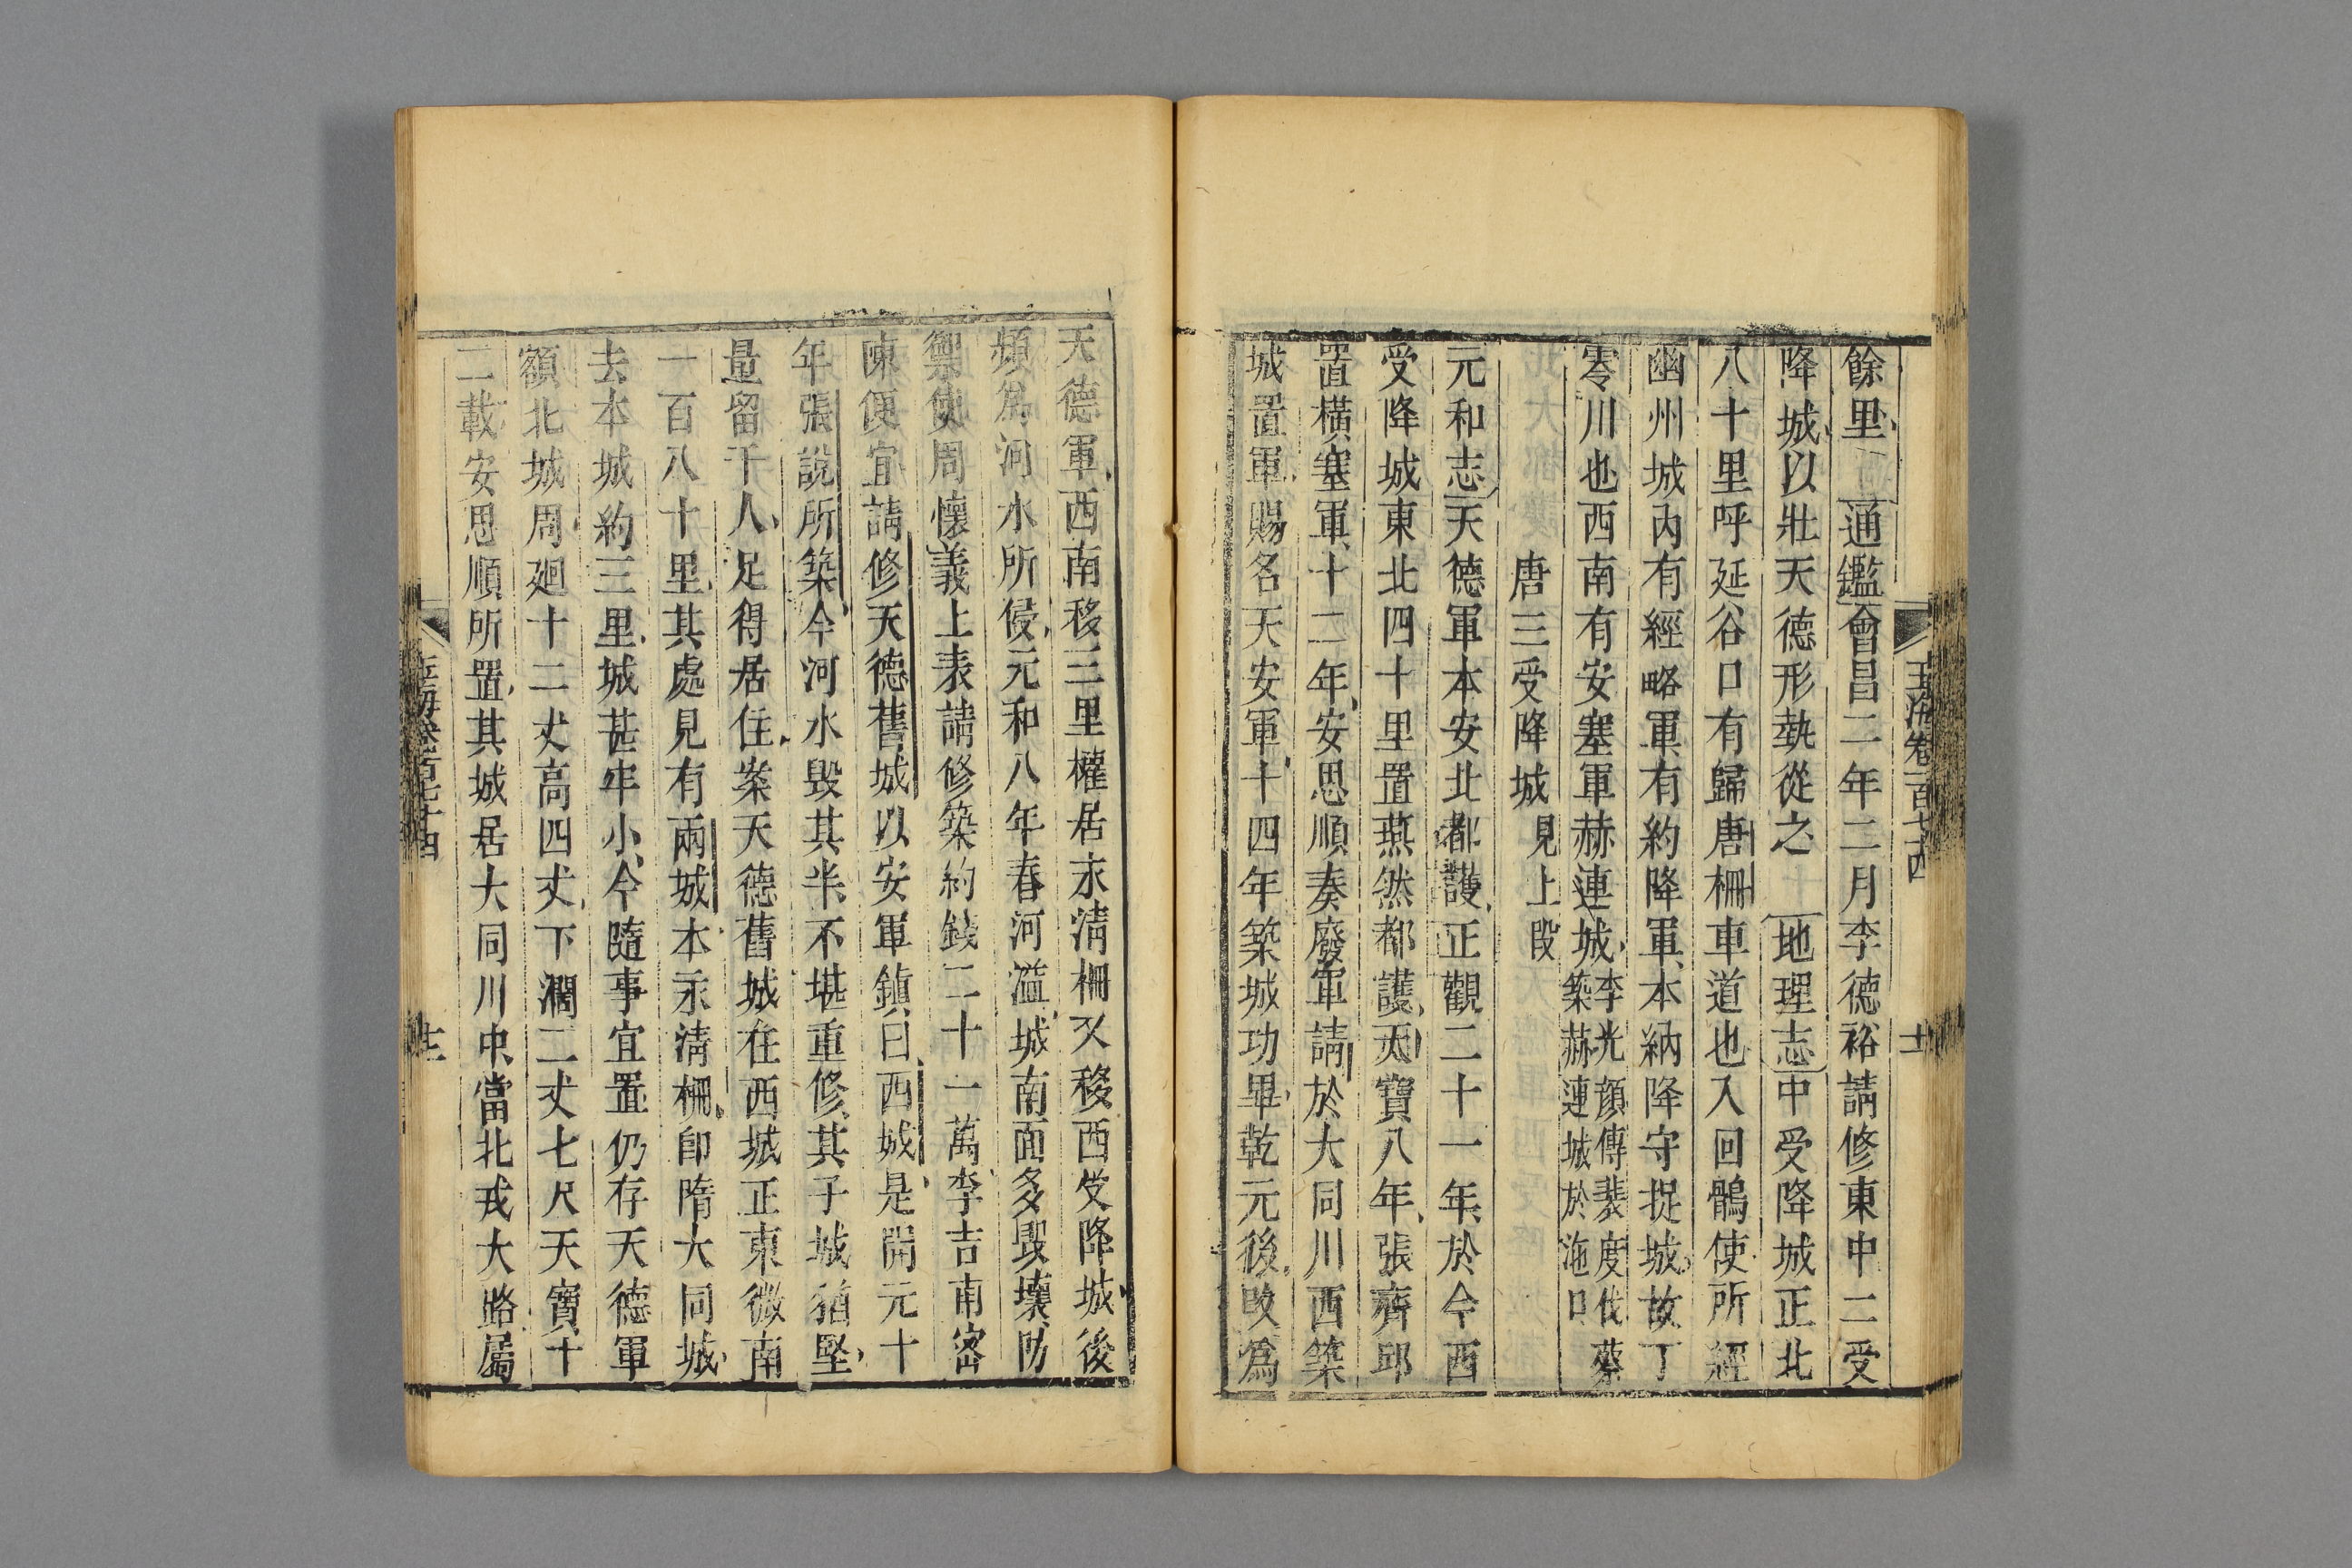 玉海卷一百七十四
十一
餘里通鑑會昌二年二月李德裕請修東中二受
降城以壯天德形埶從之地理志中受降城正北
八十里呼延谷口有歸唐柵車道也入回鶻使所經
幽州城內有經略軍有約降軍本納降守捉城故丁
零川也西南有安塞軍赫連城李光顏傳裴度伐蔡
築赫連城於沲口
唐三受降城見上段
元和志天德軍本安北都護正觀二十一年於今西
受降城東北四十里置燕然都護天寶八年張齊邱
置橫塞軍十二年安思順奏廢軍請於大同川西築
城置軍賜名天安軍十四年築城功畢乾元後改爲
天德軍西南移三里權居永淸柵又移西受降城後
頻爲河水所侵元和八年春河溢城南面多毀壞防
禦使周懷義上表請修築約錢二十一萬李吉甫密
陳便宜請修天德舊城以安軍鎮曰西城是開元十
年張說所築今河水毀其半不堪重修其子城猶堅
量留千人足得居住案天德舊城在西城正東微南
一百八十里其處見有兩城本永淸柵卽隋大同城
去本城約三里城甚牢小今隨事宜置仍存天德軍
額北城周廻十二丈高四丈下濶二丈七尺天寶十
二載安思順所置其城居大同川中當北戎大路屬
玉海卷一百七十四
十二